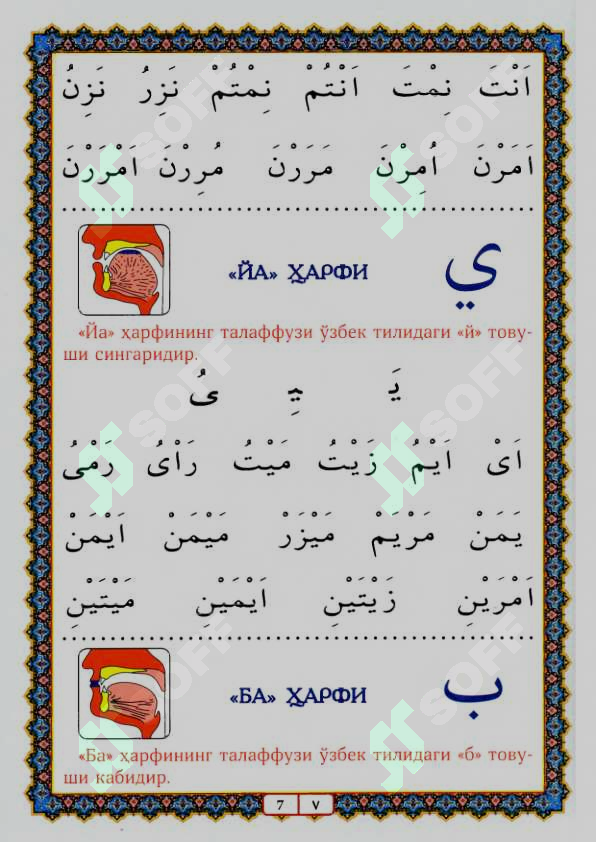 اَنْتَ نِمْتَ اَنْتُمْ نِمْتُمْ نَزِرُ نَزِنُ
اَمَرْنَ اُمِرْنَ مَرَرْنَ مُرِرْنَ اَمْرَرْنَ
«ЙА» ҲАРФИ ي
«Йа» ҳарфининг талаффузи ўзбек тилидаги «й» тову-
ши сингаридир.
يَ يِ ىُ
اَىْ اَيْمُ زَيْتُ مَيْتُ رَاْىُ رَمْىُ
يَمَنْ مَرْيَمْ مَيْزَرْ مَيْمَنْ اَيْمَنْ
اَمْرَيْنِ زَيْتَيْنِ اَيْمَيْنِ مَيْتَيْنِ
«БА» ҲАРФИ ب
«Ба» ҳарфининг талаффузи ўзбек тилидаги «б» тову-
ши кабидир.
7 ٧
SOFF
SOFF
SOFF
SOFF
SOFF
SOFF